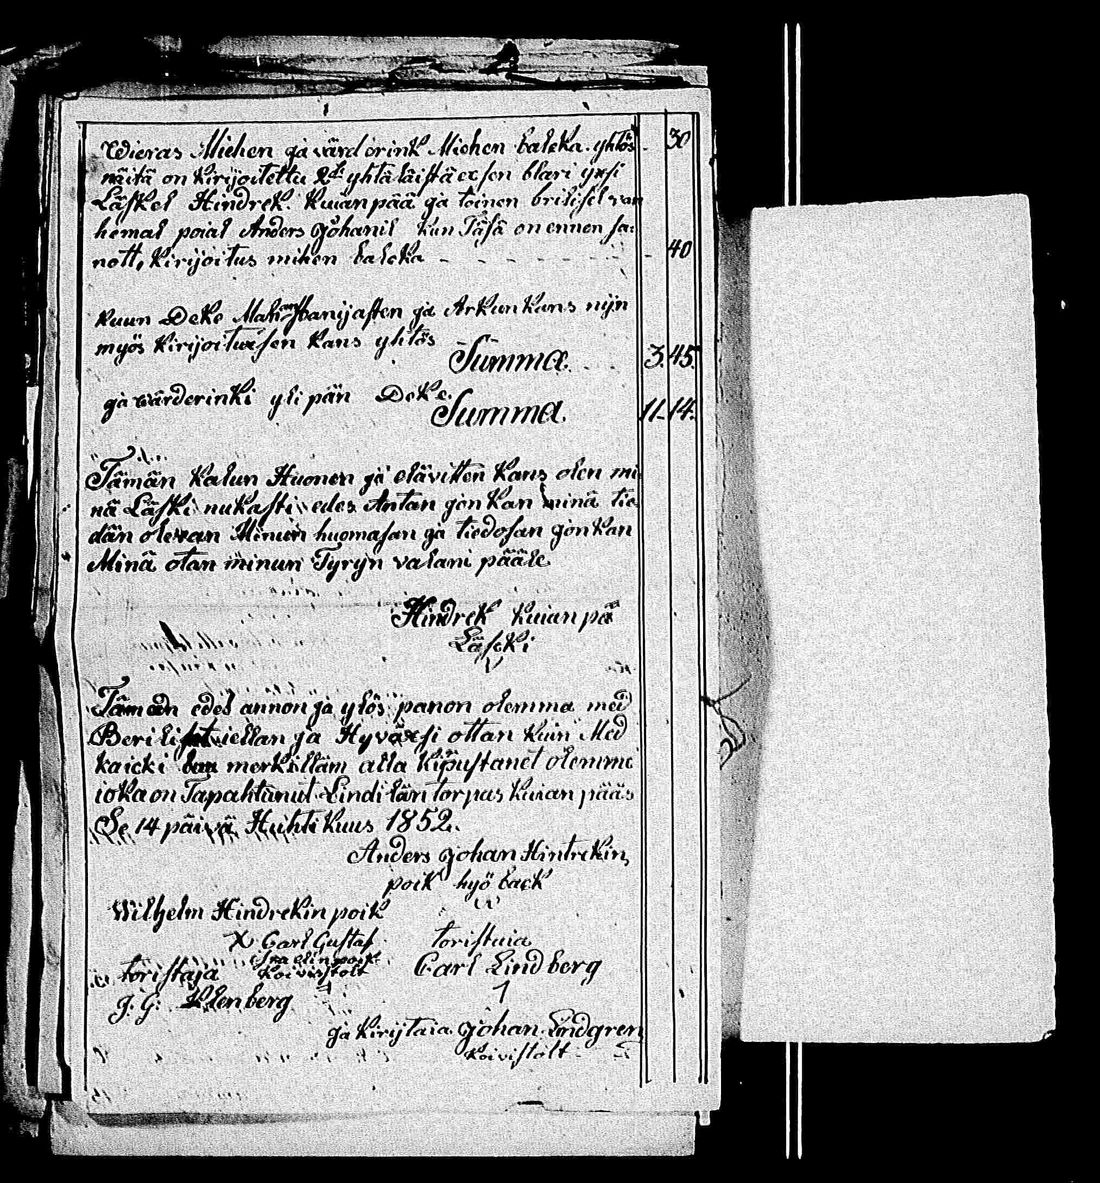 Wieras Miehen ja värdörink Miehen palcka yhtös 30
näitä on kirjoitettu 2si yhtäläistä exsen blari yxsi
Läskel Hindrek. Kuianpää ja toinen
hemal poial Anders Johanil kun Täsä on ennen sa:
nott, kirijoitus mihen palcka - - - 40
kuun Deke ja Arkun kans nijn
myös kirijoituxsen kans yhtös
Summa. 3.45.
ja wärderinki yli pän Deke.
Summa. 11-14.
Tämän kalun Huonen ja elävitten kans olen mi
nä Läski nukasti edes Antan jonkan minä tie
dän olevan Minun huomasan ja tiedosan jonkan
Minä otan minun Tyryn valani pääle
Hindrek kuian pä
Läscki
Tämän edes annon ja ylös panon olemma med
ja Hyväxsi ottan kuin Med
kaicki merkilläm alla Kirjustanet olemme
ioka on Tapahtunut Lindilän torpas kuian pääs
Se 14 päivä Huhti kuus 1852.
Anders Johan Hintrekin
poik hyö back
Wilhelm Hindrekin poik
X Carl Gustaf toristaia
Israelin poik
toristaja Koivistolt Carl Lindberg
J. G. Klenberg
ja kirijtaia Johan Lindgren
Koivistolt